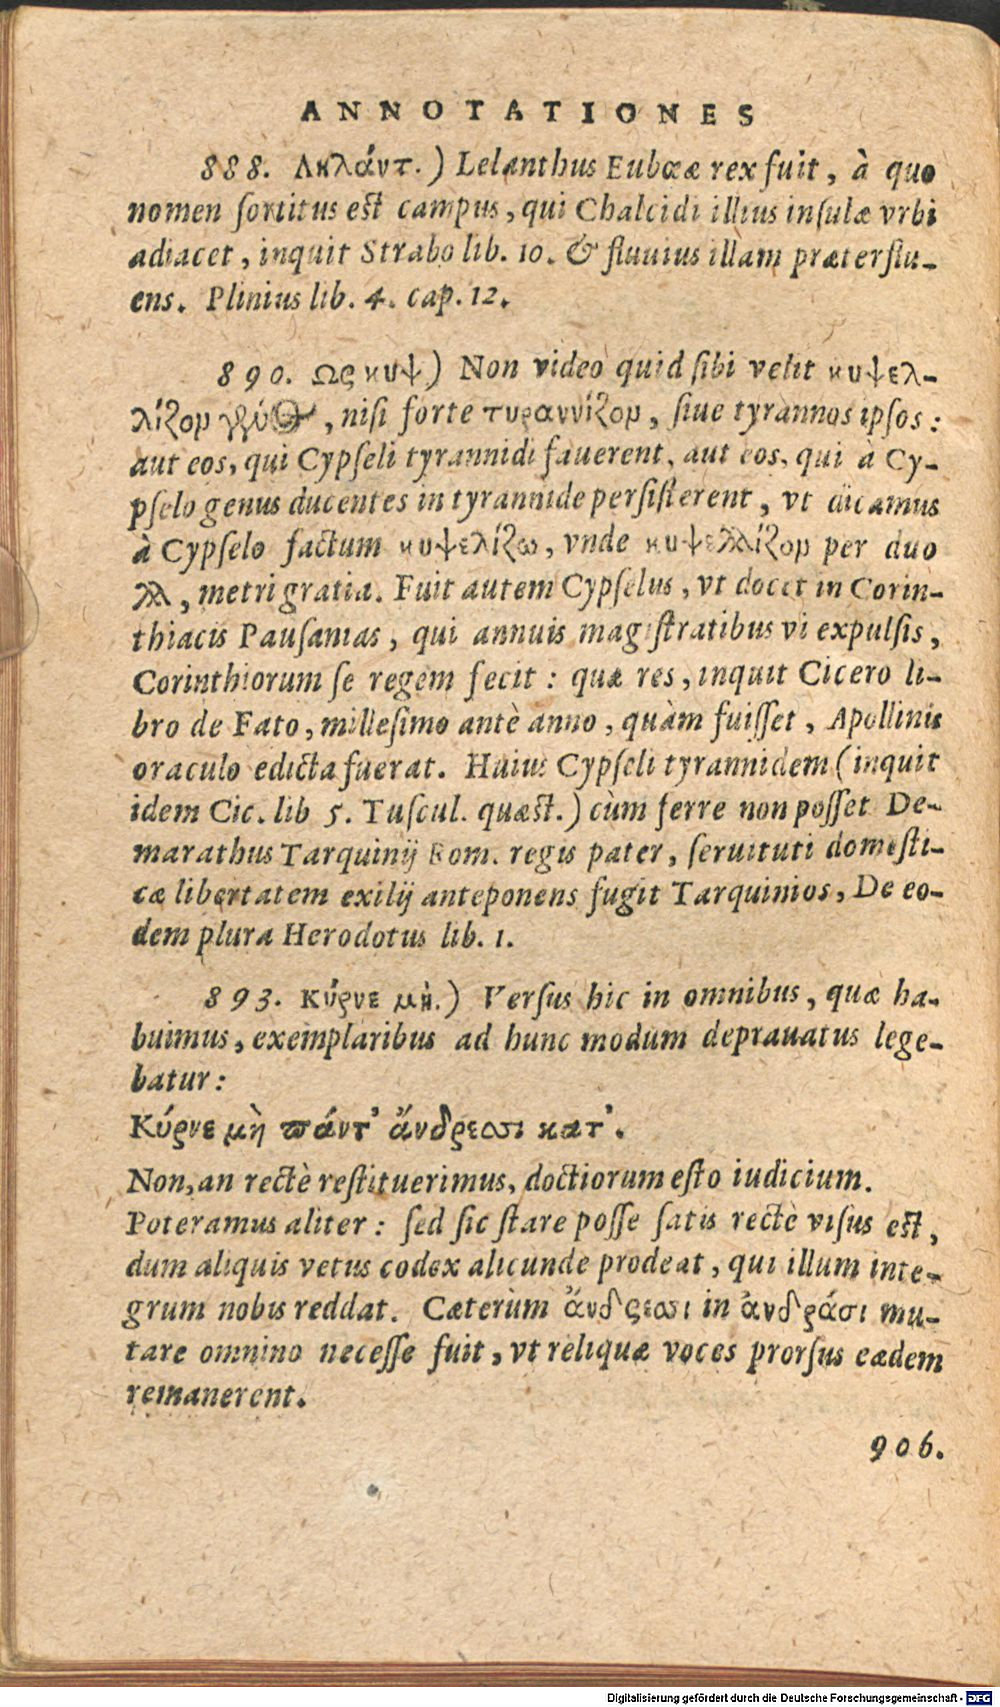 ANNOTATIONES
888. Ληλάντ.) Lelanthus Eubœæ rex fuit, à quo
nomen sortitus est campus, qui Chalcidi illius insulæ vrbi
adiacet, inquit Strabo lib. 10. & fluuius illam præterflu-
ens. Plinius lib. 4. cap. 12.
890. Ως κυψ) Non video quid sibi velit κυψελ-
λίζον , nisi forte τυραννίζον, siue tyrannos ipsos:
aut eos, qui Cypseli tyrannidi fauerent, aut eos, qui à Cy-
pselo genus ducentes in tyrannide persisterent, vt dicamus
à Cypselo factum κυψελίζω, vnde κυψελλίζον per duo
λλ, metri gratia. Fuit autem Cypselus, vt docet in Corin-
thiacis Pausanias, qui annuis magistratibus vi expulsis,
Corinthiorum se regem fecit: quæ res, inquit Cicero li-
bro de Fato, millesimo antè anno, quàm fuisset, Apollinis
oraculo edicta fuerat. Huius Cypseli tyrannidem (inquit
idem Cic. lib 5. Tuscul. quæst.) cùm ferre non posset De-
marathus Tarquinij Rom. regis pater, seruituti domesti-
cæ libertatem exilij anteponens fugit Tarquinios, De eo-
dem plura Herodotus lib. 1.
893. Κύρνε μὴ.) Versus hic in omnibus, quæ ha-
buimus, exemplaribus ad hunc modum deprauatus lege-
batur:
Κύρνε μὴ πάντ' ἄνδρεσσι κατ'.
Non, an rectè restituerimus, doctiorum esto iudicium.
Poteramus aliter: sed sic stare posse satis rectè visus est,
dum aliquis vetus codex alicunde prodeat, qui illum inte-
grum nobis reddat. Cæterùm ἄνδρεσσι in ἀνδράσι mu-
tare omnino necesse fuit, vt reliquæ voces prorsus eædem
remanerent.
906.
Digitalisierung gefördert durch die Deutsche Forschungsgemeinschaft - DFG